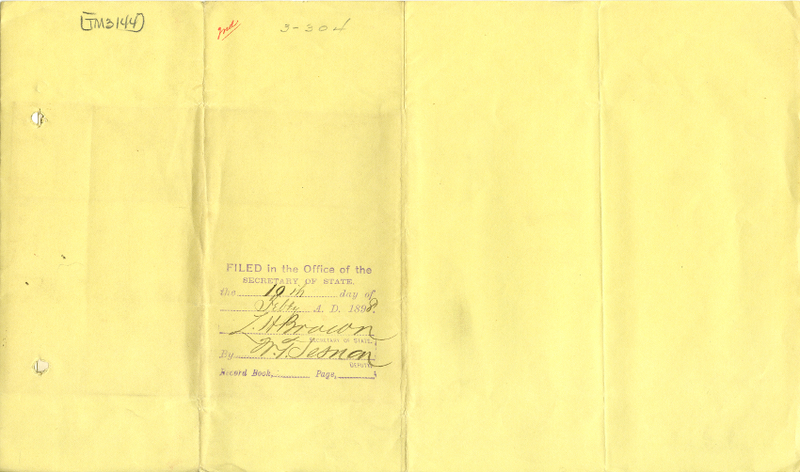 [TM3144]
2nd
3-304
FILED in the Office of the
SECRETARY OF STATE.
the 10th day of
Feb'y A. D. 1898.
L. H. Brown
SECRETARY OF STATE.
By W. T.
DEPUTY.
Record Book, Page,